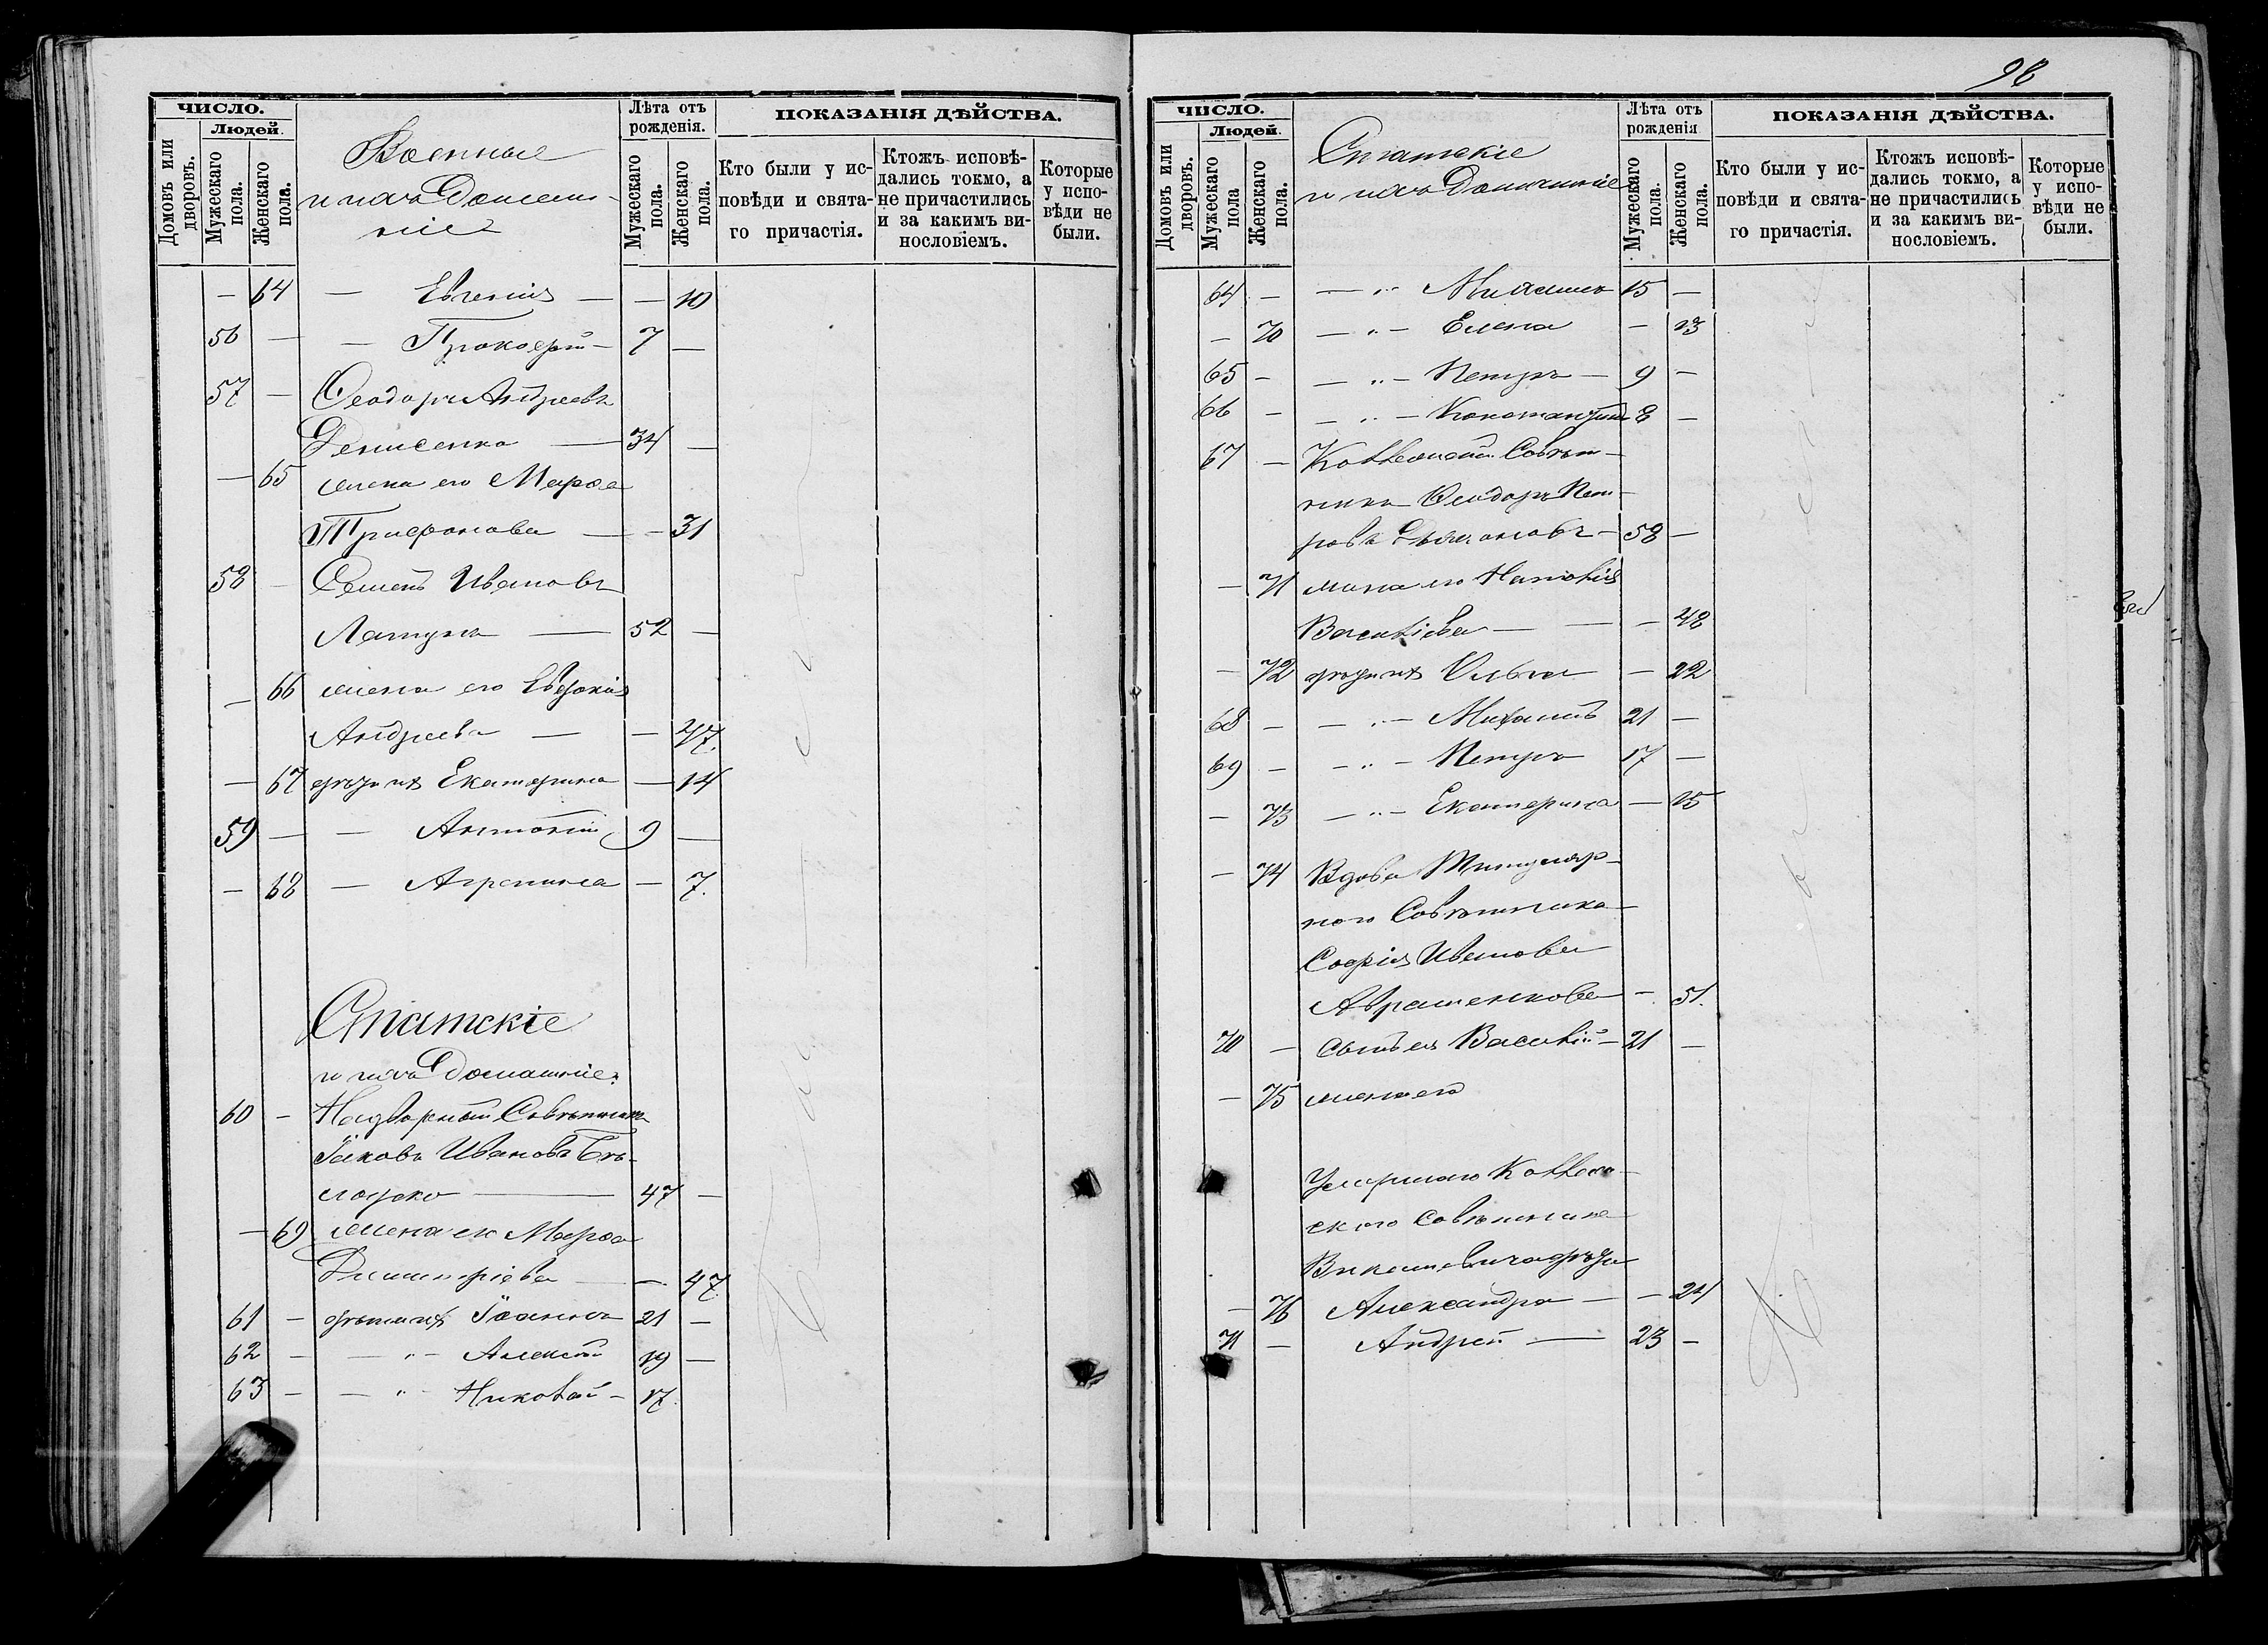 ЧИСЛО.
Людей.
Домовъ или дворовъ.
Мужескаго пола.
Женскаго пола.
Военные
и ихъ Домаш-
ніе
Лѣта отъ рожденія.
Мужескаго пола.
Женскаго пола.
ПОКАЗАНІЯ ДѢЙСТВА.
Кто были у ис-
повѣди и свята-
го причастія.
Ктожъ исповѣ-
дались токмо, а
не причастились
и за какимъ ви-
нословіемъ.
Которые
у испо-
вѣди не
были.
— 64 — Евгенія — — 10
56 — — Прокофій — 7 —
57 — Ѳеодоръ Андреевъ
Денисенко — 34 —
— 65 жена его Марѳа
Трифонова — — 31
58 — Семенъ Ивановъ
52 —
— 66 жена его Евдокія
Андреева — — 47.
— 67 дѣти ихъ Екатерина — 14
59 — — Антоній 9 —
— 68 — Агрипина — 7.
Статскіе
и ихъ Домашніе:
60 — Надворный Совѣтникъ
Іаковъ Ивановъ Бѣ-
47 —
— 69 жена его Марѳа
Димитріева — — 47
61 — дѣти ихъ Іоаннъ 21 —
62 — — „ — Алексѣй 19 —
63 — — „ — Николай — 17.
98
ЧИСЛО.
Людей.
Домовъ или дворовъ.
Мужескаго пола
Женскаго пола.
Статскіе
и ихъ Домашніе
Лѣта отъ рожденія
Мужескаго пола.
Женскаго пола.
ПОКАЗАНІЯ ДѢЙСТВА.
Кто были у ис-
повѣди и свята-
го причастія.
Ктожъ исповѣ-
дались токмо, а
не причастились
и за какимъ ви-
нословіемъ.
Которые
у испо-
вѣди не
были.
64 — — „ — Михаилъ 15 —
— 70 — „ — Елена — 13
65 — — „ — Петръ — 9 —
66 — — „ — Константинъ 8 —
67 — Коллежскій Совѣт-
никъ Ѳеодоръ Пет-
ровъ 58 —
— 71 жена его Наталія
Василіева — — — 48
— 72 дѣти ихъ Ольга — 22
68 — — „ — Михаилъ 21 —
69 — — „ — Петръ 17 —
— 73 — „ — Екатерина — 15
— 74 Вдова Титуляр-
наго Совѣтника —
Софія Иванова
Авраменкова — — 51.
70 — Сынъ ея Василій — 21 —
— 75 жена его
Умершаго Коллеж-
скаго Совѣтника
дѣти
— 76 Александра — — 24
71 — Андрей — 23 —